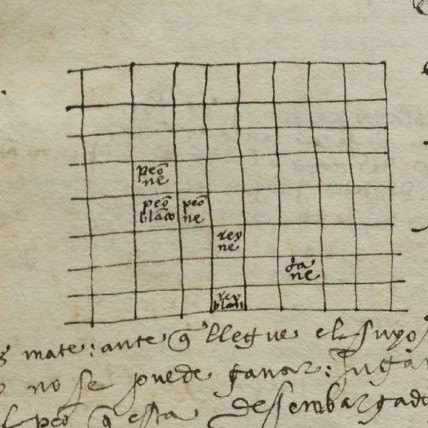 peõ
ne
peõ
blãco
peõ
ne
rey
ne
da
ne
rey
blan
mate: ante q̃ llegue el suyo
no se puede ganar: Jugar
l peõ q̃ esta dessembargado